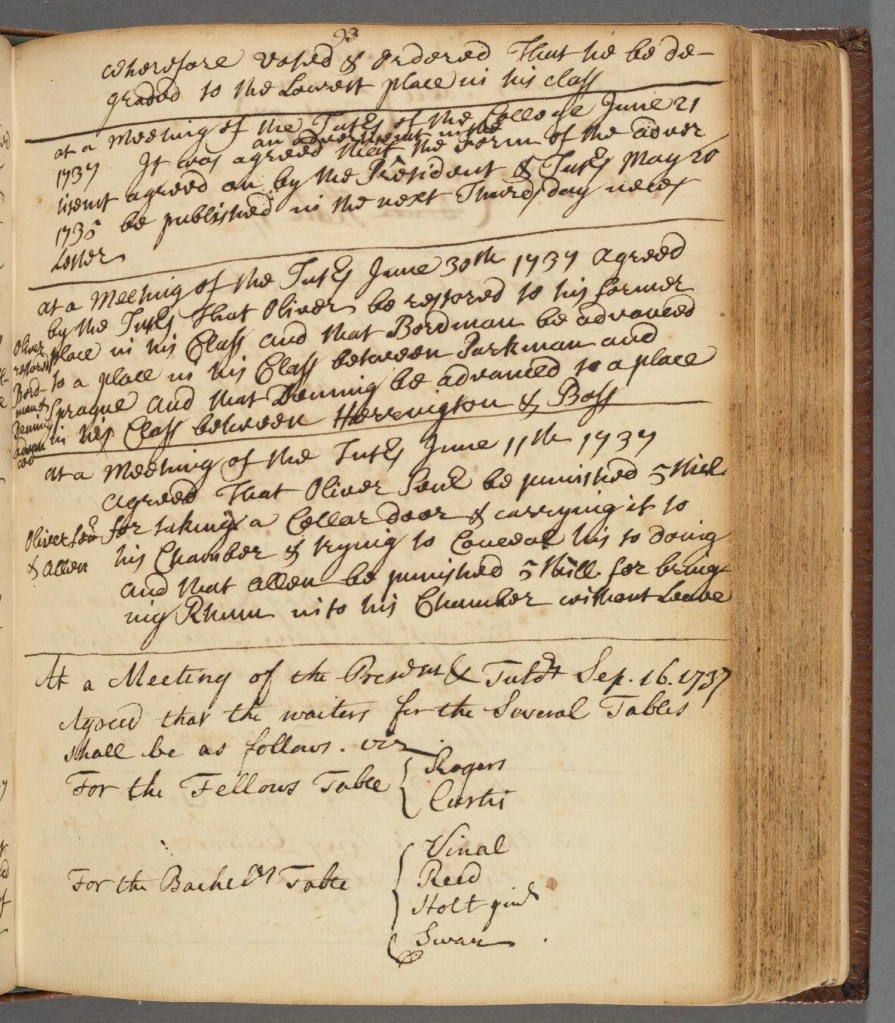 23
wherefore Voted & Ordered That he be de-
graded to the Lowest place in his class
at a Meeting of the Tutrs of the College June 21
an advertisment in the
1737 It was agreed that the Form of the adver
tisemt agreed on by the President & Tutrs May 20
1735 be published in the next Thursday news
Letter
at a Meeting of the Tutrs June 30th 1737 agreed
by the Tutrs That Oliver be restored to his former
place in his Class and that Bordman be advanced
to a place in his Class between Parkman and
Sprague and that Denning be advanced to a place
in his Class between Herrington & Bass
Oliver
restored
Bord-
man &
Denning
advan
ced
at a Meeting of the Tutrs June 11th 1737
agreed That Oliver Senr be punished 5 Shill
for taking a Cellar door & carrying it to
his Chamber & trying to Conceal his so doing
and that Allen be punished 5 Shill for bring
ing Rhum into his Chamber without Leave
Oliver Senr
& Allen
At a Meeting of the Presdent & Tutors Sep. 16. 1737
Agreed that the waiters for the Several Tables
shall be as follows. viz
For the Fellows Table { Rogers
Curtis
For the Bachelrs Table { Vinal
Reed
Holt
Swan